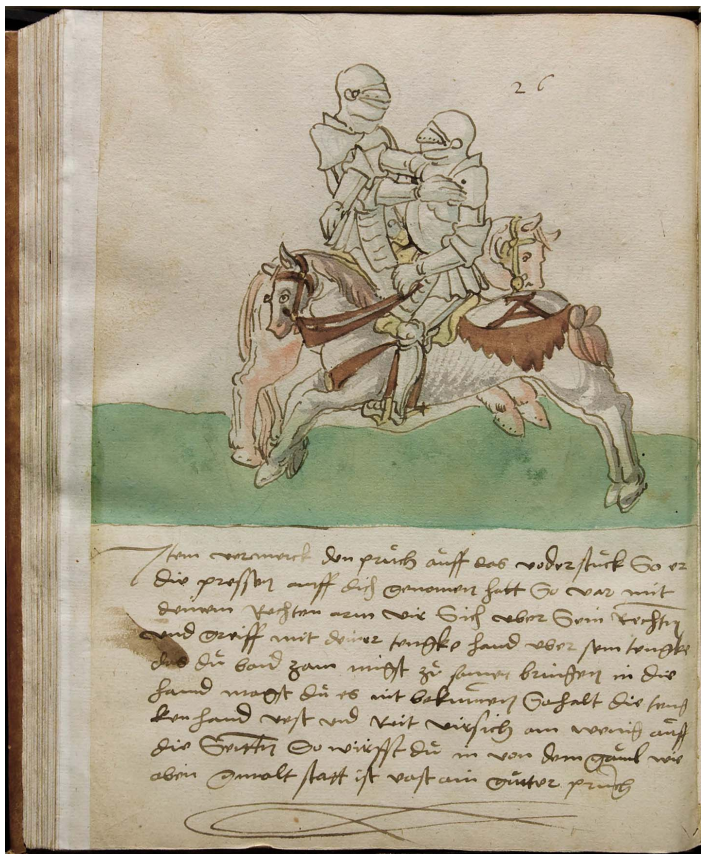 26
Item vermerck den pruch auff das voder stuck So er
die pressen auff dich genomen hatt So var mit
deinem Rechten arm vir Sich vber Sein Rechtn
vnd greiff mit deiner tengke hand vber sein tengke
das du baid zam migst zu samen bringen in die
hannd magst du es nit bekumen So halt die teng
ken hand vest vnd Reit virsich ain wenig auff
die Seittn So wirffst du in von dem gaul wie
oben gmalt statt ist vast ain guetter pruch